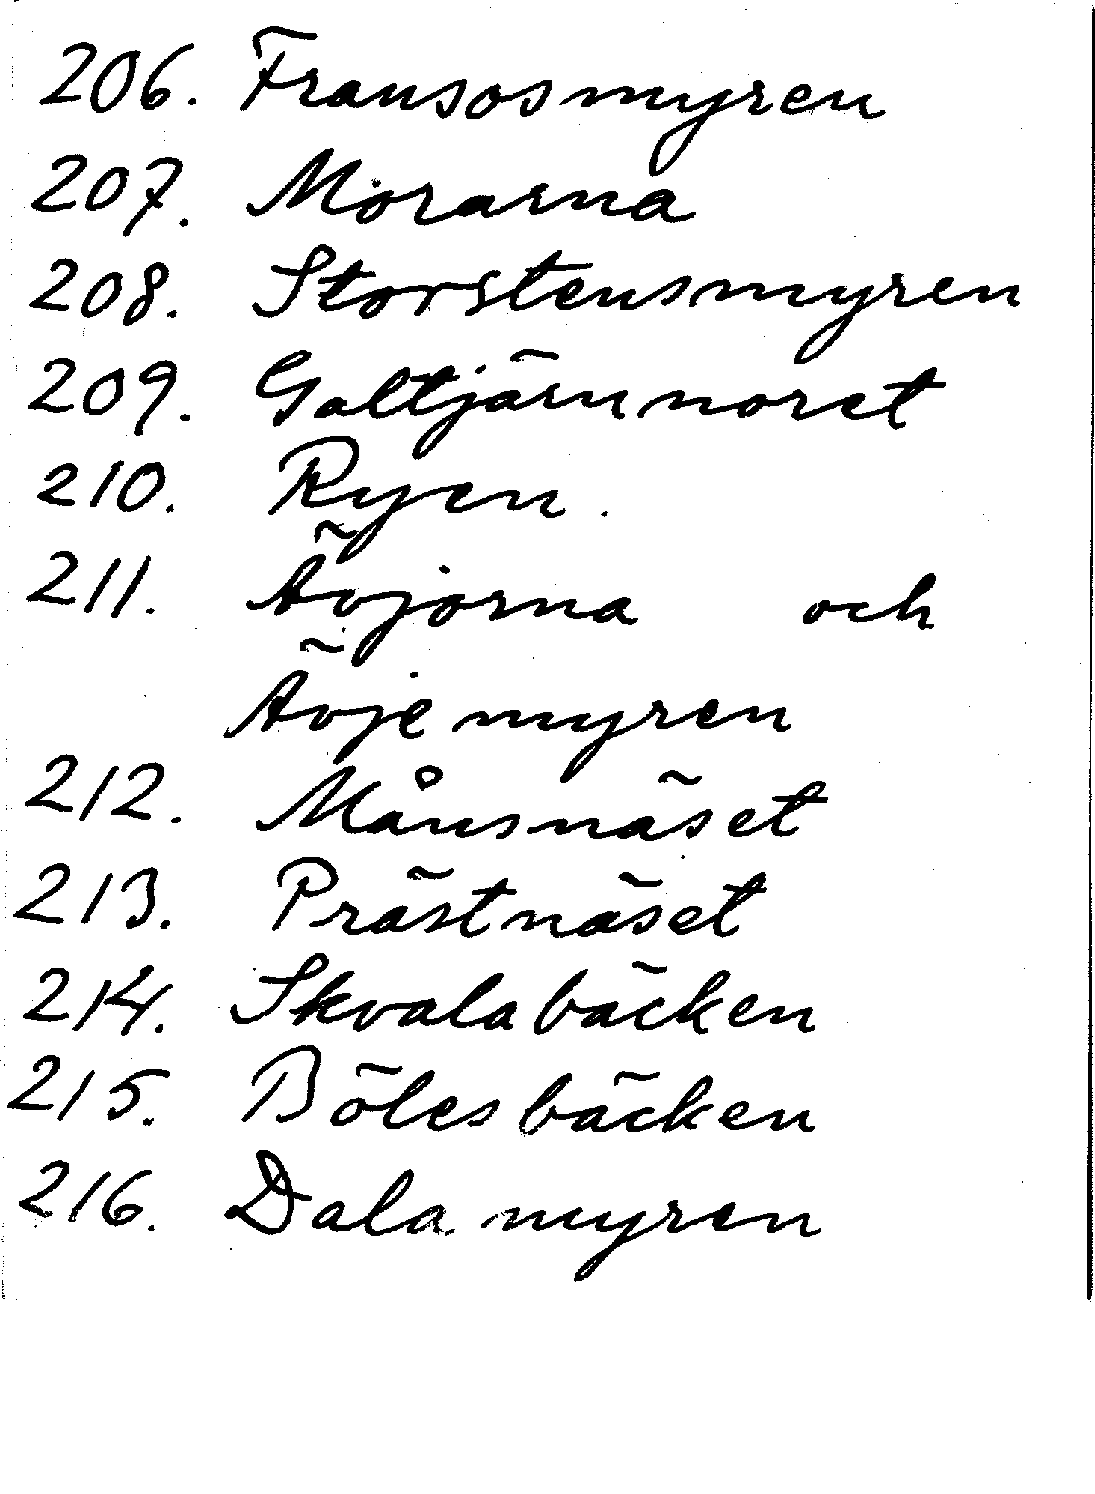 206. Fransosmyren
207. Morarna
208. Storstensmyren
209. Galtjärnnoret
210. Ryen.
211. Ävjorna och
Ävjemyren
212. Månsnäset
213. Prästnäset
214. Skvalabäcken
215. Bölesbäcken
216. Dalamyren